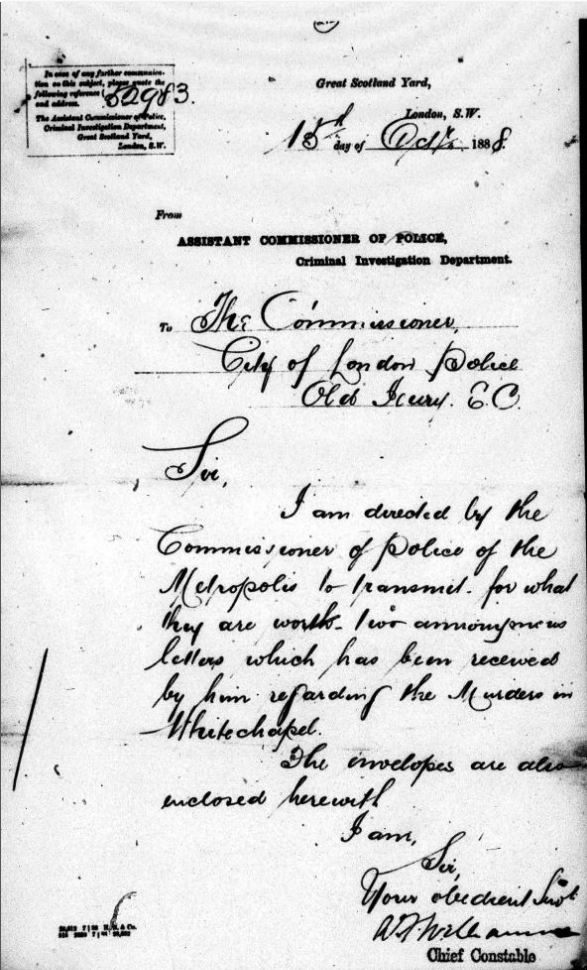 In case of any further communica-
tion on this subject, please quote the
following reference
and address.
52983.
The Assistant Commissioner of Police,
Criminal Investigation Department,
Great Scotland Yard,
London, S.W.
Great Scotland Yard,
London, S.W.
day of Octr. 1888.
From
ASSISTANT COMMISSIONER OF POLICE,
Criminal Investigation Department.
To The Commissioner,
City of London Police
Old Jewry. E.C.
Sir,
I am directed by the
Commissioner of Police of the
Metropolis to transmit - for what
they are worth - two annonymous
letters which has been received
by him regarding the Murders in
Whitechapel.
The envelopes are also
enclosed herewith
I am,
Sir,
Your obedient Servt
Chief Constable